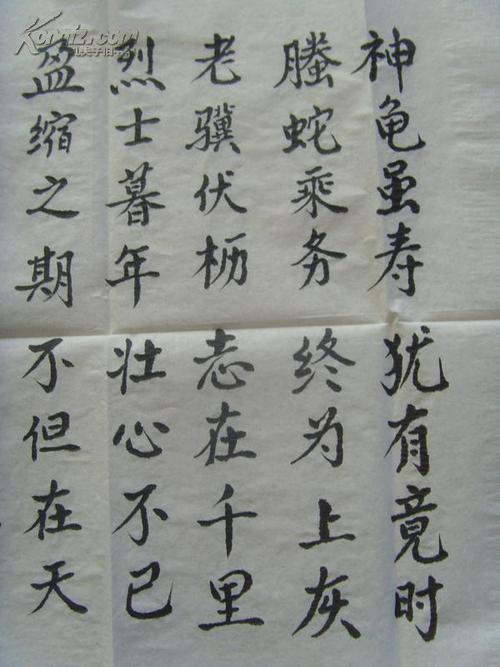 神龟虽寿 犹有竟时
螣蛇乘务 终为上灰
老骥伏枥 志在千里
烈士暮年 壮心不已
盈缩之期 不但在天